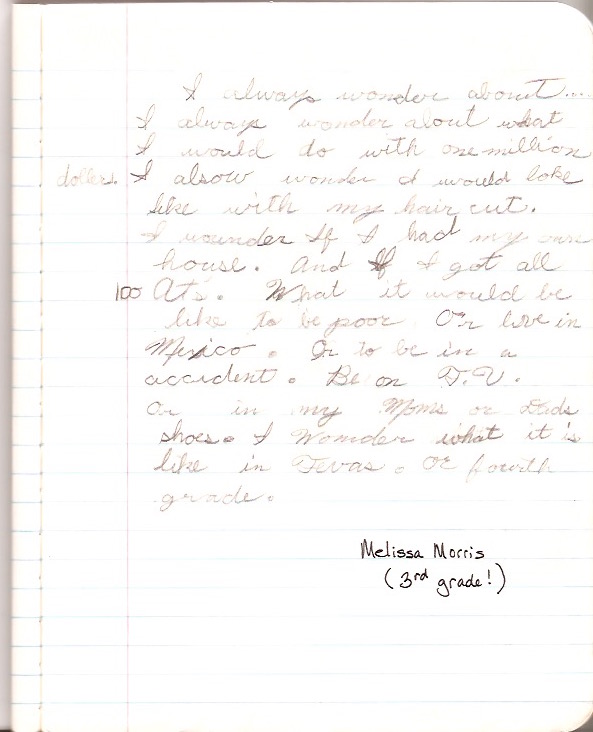 I always wonder about....
I always wonder about what
I would do with one million
dollers. I alsow wonder I would loke
like with my hair cut.
I wounder If I had my own
house. And If I got all
100 Ats. What it would be
like to be poor. Or live in
Mexico. Or to be in a
accident. Be on T.V.
Or in my Moms or Dads
shoes. I Wonder what it is
like in Texas. Or fourth
grade.
Melissa Morris
(3rd grade!)